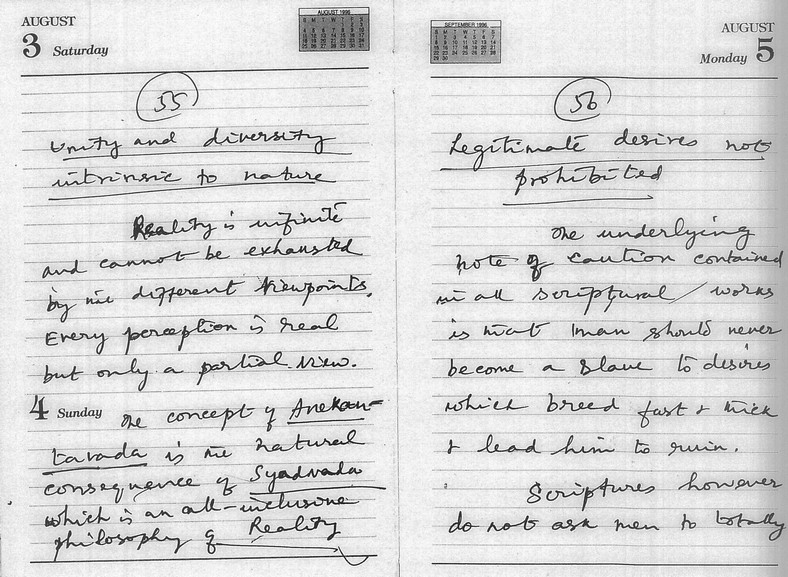 AUGUST
3 Saturday
AUGUST 1996
55
Unity and diversity
intrinsic to nature
Reality is infinite
and cannot be exhausted
by the different viewpoints.
Every perception is real
but only a partial view.
4 Sunday
The concept of Anekan-
tavada is the natural
consequence of Syadvada
which is an all-inclusive
philosophy of Reality
SEPTEMBER 1996
AUGUST
Monday 5
56
Legitimate desires not
prohibited
The underlying
note of caution contained
in all scriptural works
is that man should never
become a slave to desires
which breed fast & thick
& lead him to ruin.
Scriptures however
do not ask men to totally